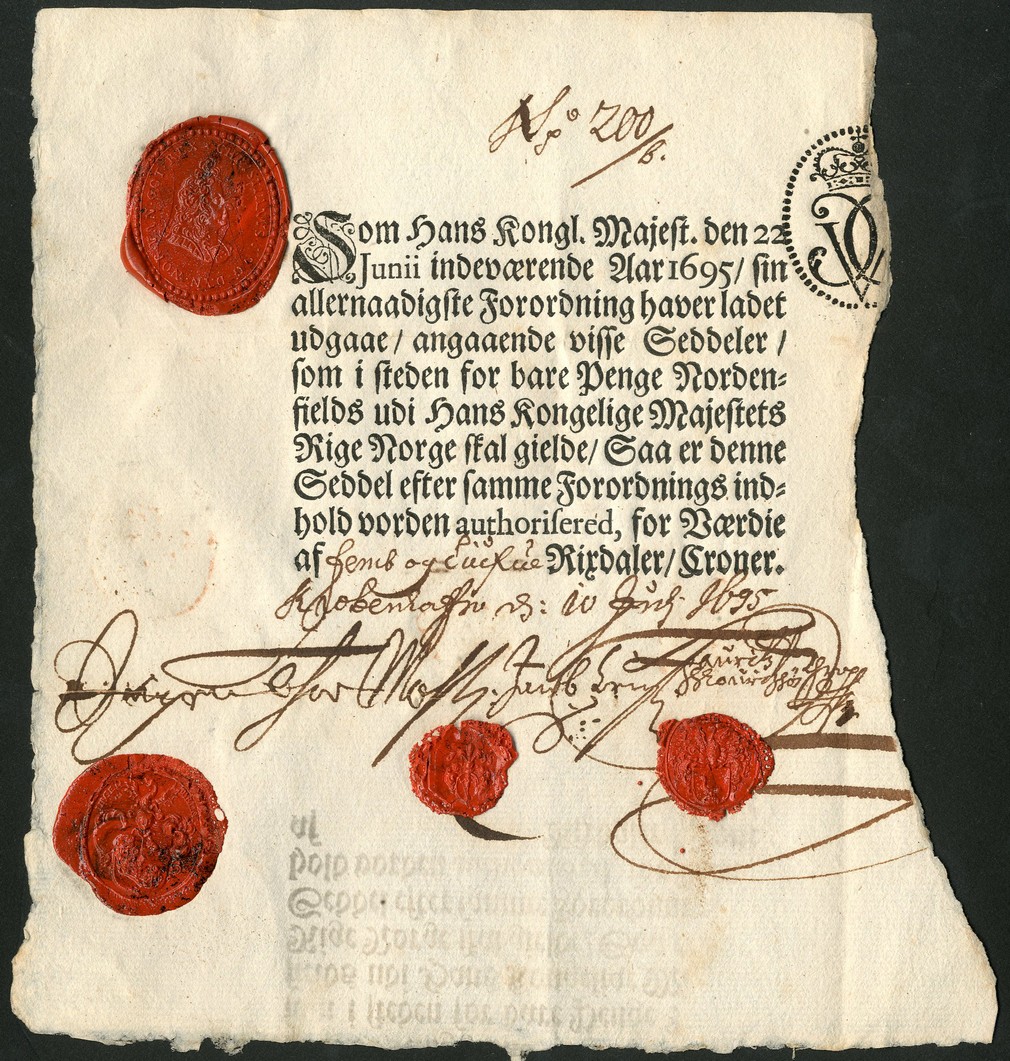 No 200
Som Hans Kongl. Majest. den 22
Junii indeværende Aar 1695/ sin
allernaadigste Forordning haver ladet
udgaae / angaaende visse Seddeler /
som i steden for bare Penge Norden=
fields udi Hans Kongelige Majestets
Rige Norge skal gielde/ Saa er denne
Seddel efter samme Forordnings ind=
hold vorden authorisered, for Værdie
af femb og Tiufue Rixdaler/ Croner.
Kiøbenhafn d: 10 July 1695
Jørgen thor Møhlen